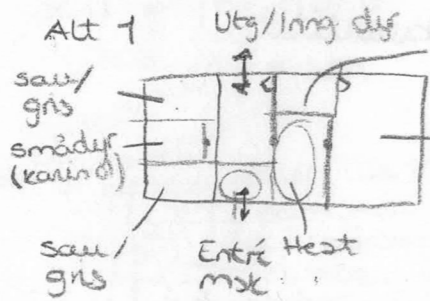 Alt 1
Utg/Inng dyr
sau/
gris
smådyr
(kanin o)
sau
gris
Entré
msk
Hest